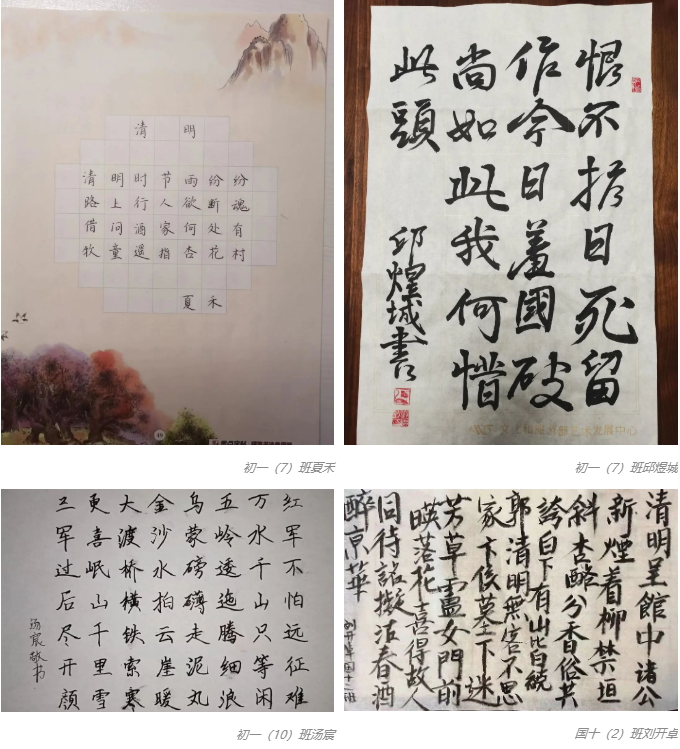 清明
清明时节雨纷纷
路上行人欲断魂
借问酒家何处有
牧童遥指杏花村
夏禾
48
初一（7）班夏禾
恨不抗日死留
作今日羞國破
尚如此我何惜
此頭
邱煜城書
初一（7）班邱煜城
红军不怕远征难
万水千山只等闲
五岭逶迤腾细浪
乌蒙磅礴走泥丸
金沙水拍云崖暖
大渡桥横铁索寒
更喜岷山千里雪
三军过后尽开颜
汤宸敬书
初一（10）班汤宸
清明呈館中諸公
新煙着柳禁垣
斜杏酪分香俗共
誇白下有山皆繞
郭清明無客不思
家卞侯墓下迷
芳草盧女門前
暎落花喜得故人
同待詔擬沽春酒
醉京華
国十（2）班刘开卓